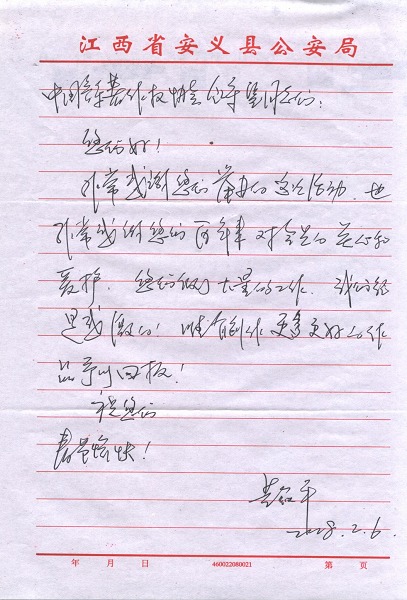 江西省安义县公安局
中国音乐著作权协会的领导同志们：
您们好！
非常感谢您们举办的这次活动，也
非常感谢您们多年来对会员的关心和
爱护，您们做了大量的工作，我们经
是感激的！唯有创作更多更好的作
品予以回报！
祝您们
春节愉快！
2008.2.6.
年 月 日 460022080021 第 页